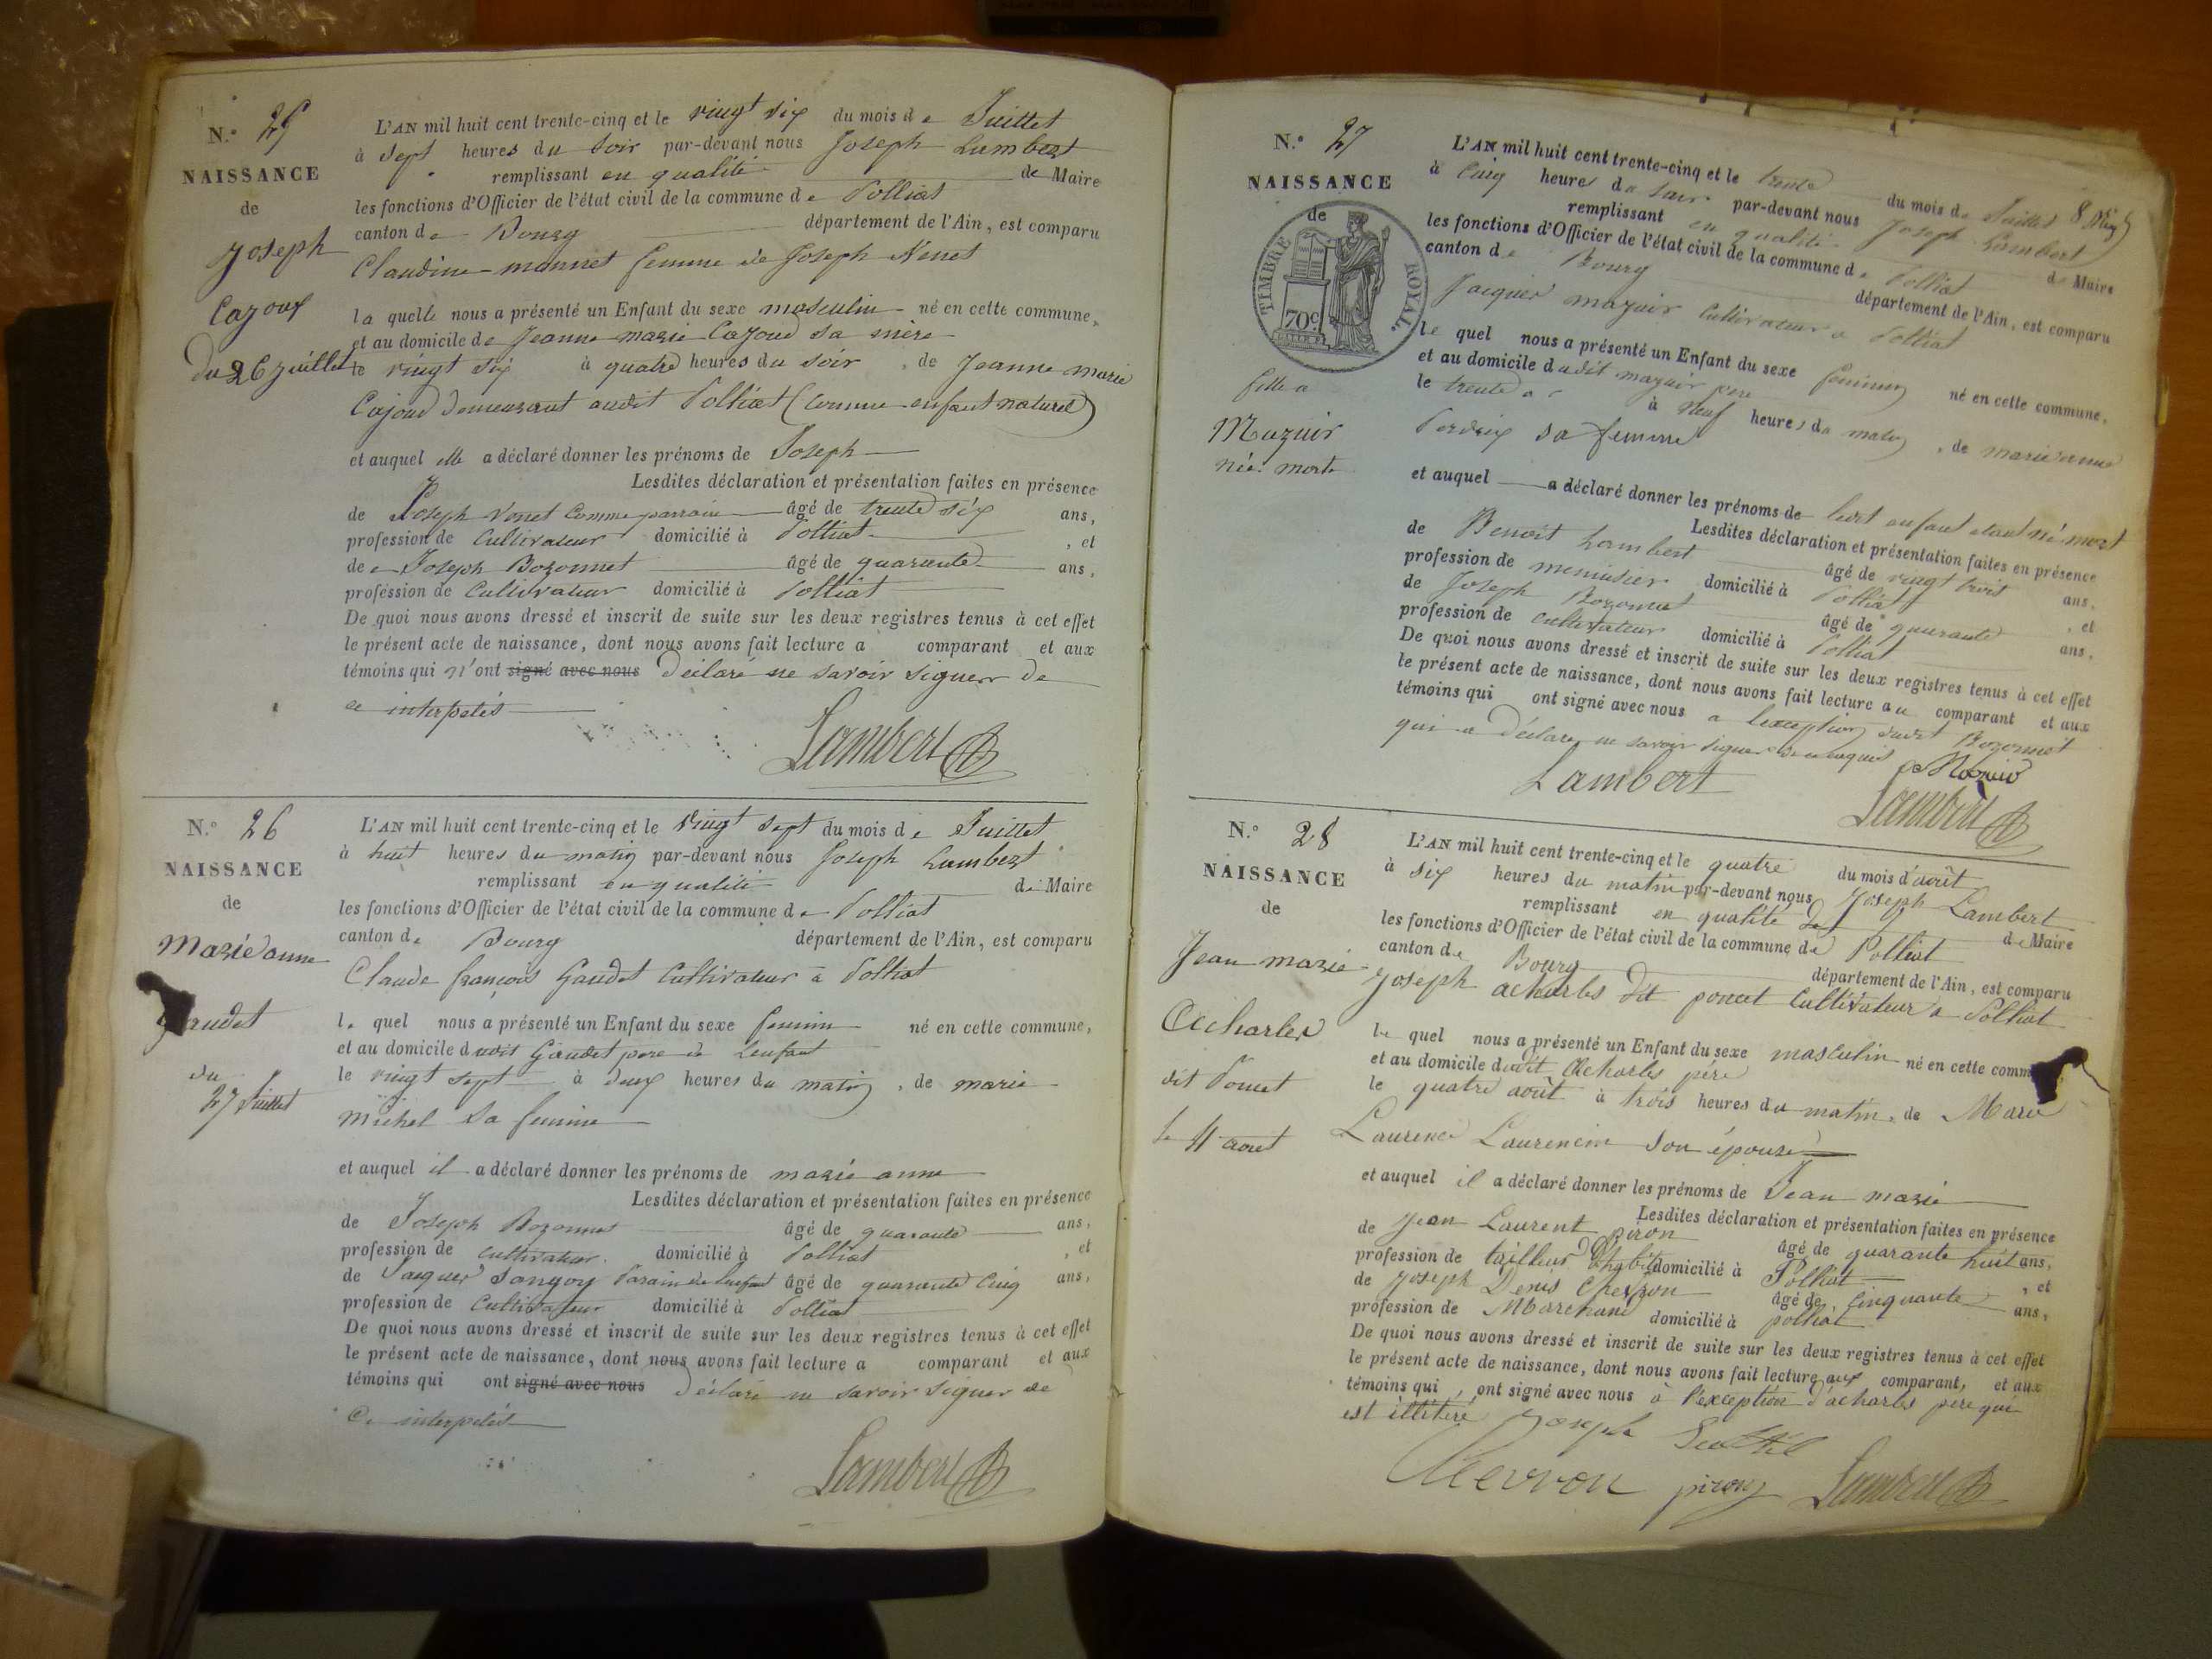 N.° 25
NAISSANCE
de
Joseph
Cajoux
du 26 juillet
L'AN mil huit cent trente-cinq et le vingt six du mois de Juillet
à sept heures du soir par-devant nous Joseph Lambert
remplissant en qualité de Maire
les fonctions d'Officier de l'état civil de la commune de Polliat
canton de Bourg département de l'Ain, est comparu
Claudine monnet femme de Joseph Venet
la quelle nous a présenté un Enfant du sexe masculin né en cette commune,
et au domicile de Jeanne marie Cajoud sa mère
le vingt six à quatre heures du soir, de Jeanne marie
Cajoud demeurant audit Polliat (comme enfant naturel)
et auquel elle a déclaré donner les prénoms de Joseph
Lesdites déclaration et présentation faites en présence
de Joseph Vonet Comme parrain âgé de trente six ans,
profession de Cultivateur domicilié à Polliat, et
de Joseph Bozonnet âgé de quarente ans,
profession de Cultivateur domicilié à Polliat
De quoi nous avons dressé et inscrit de suite sur les deux registres tenus à cet effet
le présent acte de naissance, dont nous avons fait lecture a comparant et aux
témoins qui n'ont signé avec nous déclaré ne savoir signer de
ce interpelés
Lambert
N.° 26
NAISSANCE
de
Marie anne
Gaudet
du
27 Juillet
L'AN mil huit cent trente-cinq et le vingt sept du mois de Juillet
à huit heures du matin par-devant nous Joseph Lambert
remplissant en qualité de Maire
les fonctions d'Officier de l'état civil de la commune de Polliat
canton de Bourg département de l'Ain, est comparu
Claude françois Gaudet Cultivateur à Polliat
le quel nous a présenté un Enfant du sexe feminin né en cette commune,
et au domicile dudit Gaudet pere de Lenfant
le vingt sept à deux heures du matin, de marie
michel sa femme
et auquel il a déclaré donner les prénoms de marie anne
Lesdites déclaration et présentation faites en présence
de Joseph Bozonnet âgé de quarante ans,
profession de cultivateur domicilié à Polliat, et
de Jacques Sangoy Parain de Lenfant âgé de quarante Cinq ans,
profession de Cultivateur domicilié à Polliat
De quoi nous avons dressé et inscrit de suite sur les deux registres tenus à cet effet
le présent acte de naissance, dont nous avons fait lecture a comparant et aux
témoins qui ont signé avec nous déclaré ne savoir signer de
Ce interpelés
Lambert
N.° 27
NAISSANCE
de
TIMBRE ROYAL
70c
fille a
Mazuir
née morte
L'AN mil huit cent trente-cinq et le trente du mois de Juillet
à Cinq heures du soir par-devant nous Joseph Lambert
remplissant en qualité de Maire
les fonctions d'Officier de l'état civil de la commune de Polliat
canton de Bourg département de l'Ain, est comparu
Jacques mazuir Cultivateur a Polliat
le quel nous a présenté un Enfant du sexe feminin né en cette commune,
et au domicile dudit mazuir pere
le trente à neuf heures du matin, de marie anne
Perdrix sa femme
et auquel a déclaré donner les prénoms de ledit enfant etant né mort
Lesdites déclaration et présentation faites en présence
de Benoit Lambert âgé de vingt trois ans,
profession de menuisier domicilié à Polliat, et
de Joseph Bozonnet âgé de quarante ans,
profession de cultivateur domicilié à Polliat
De quoi nous avons dressé et inscrit de suite sur les deux registres tenus à cet effet
le présent acte de naissance, dont nous avons fait lecture au comparant et aux
témoins qui ont signé avec nous a lexception dudit Bozonnet
qui a déclaré ne savoir signer de ce enquis
Lambert
Lambert
N.° 28
NAISSANCE
de
Jean marie
Acharles
dit Poncet
le 4 aout
L'AN mil huit cent trente-cinq et le quatre du mois d'août
à six heures du matin par-devant nous Joseph Lambert
remplissant en qualité de de Maire
les fonctions d'Officier de l'état civil de la commune de Polliat
canton de Bourg département de l'Ain, est comparu
Joseph acharles dit poncet Cultivateur a Polliat
le quel nous a présenté un Enfant du sexe masculin né en cette comm
et au domicile dudit Acharles père
le quatre août à trois heures du matin, de Marie
Laurence Laurencin son épouse
et auquel il a déclaré donner les prénoms de Jean marie
Lesdites déclaration et présentation faites en présence
de Jean Laurent Piron âgé de quarante huit ans,
profession de tailleur d'habits domicilié à Polliat, et
de Joseph Denis Chervon âgé de Cinquante ans,
profession de Marchand domicilié à polliat
De quoi nous avons dressé et inscrit de suite sur les deux registres tenus à cet effet
le présent acte de naissance, dont nous avons fait lecture aux comparant, et aux
témoins qui, ont signé avec nous à l'exception d'acharles pere qui
est illitéré
Joseph
Chervon piron Lambert